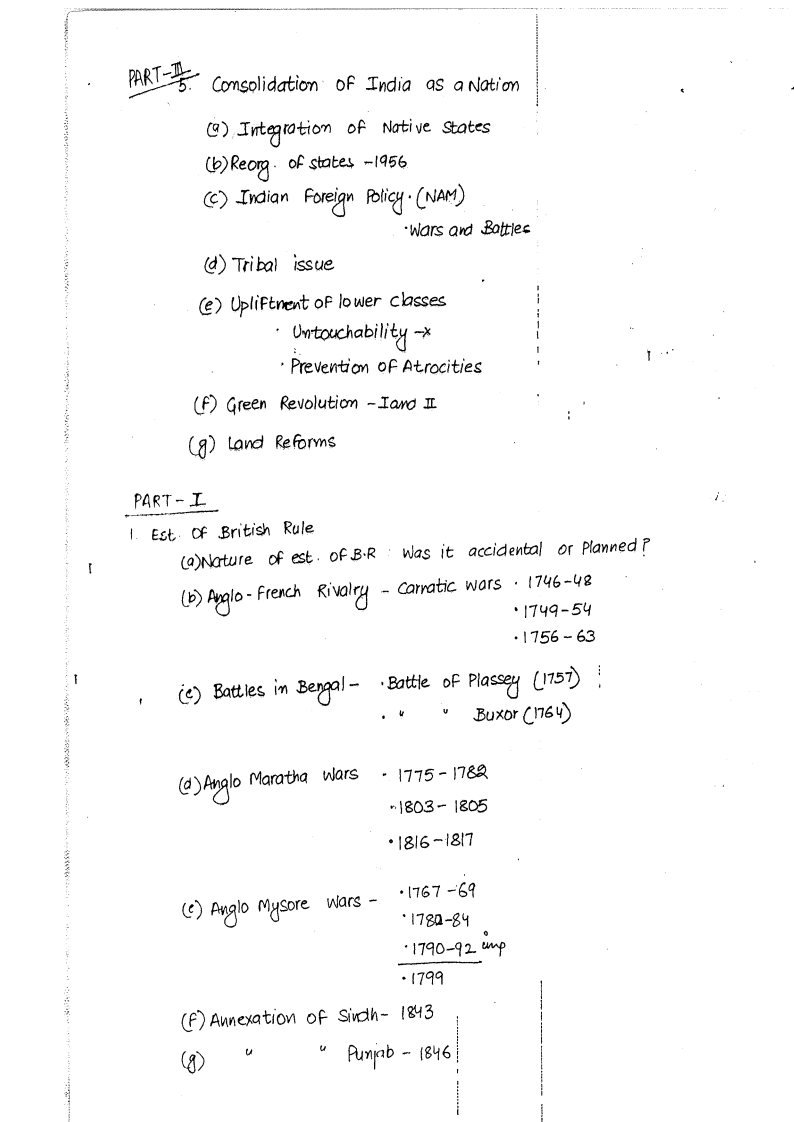 PART-III
5. Consolidation of India as a Nation
(a) Integration of Native States
(b) Reorg. of states -1956
(c) Indian Foreign Policy. (NAM)
·Wars and Battles
(d) Tribal issue
(e) Upliftment of lower classes
· Untouchability → x
· Prevention of Atrocities
(f) Green Revolution - I and II
(g) Land Reforms
PART - I
1. Est. of British Rule
(a) Nature of est. of B.R : Was it accidental or Planned?
(b) Anglo - French Rivalry - Carnatic wars · 1746-48
· 1749-54
· 1756-63
(c) Battles in Bengal - · Battle of Plassey (1757)
· " " Buxor (1764)
(d) Anglo Maratha Wars · 1775-1782
· 1803-1805
· 1816-1817
(e) Anglo Mysore Wars - · 1767-69
· 1780-84
· 1790-92 imp
· 1799
(f) Annexation of Sindh - 1843
(g) " " Punjab - 1846